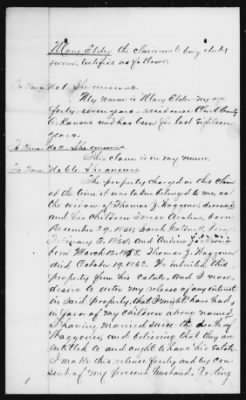 Mary Elder the claimant being duly
sworn, testifies as follows.
My name is Mary Elder my age
forty-seven years - residence
Kansas and has been for last eighteen
years.
This claim is in my name.
The property charged in this claim
at the time it was taken belonged to me, as
the widow of Thomas J. Waggoner deceased
and his children
born
December 29, 1850, Sarah
February 2, 1854, and
born March 12, 1858, Thomas J. Waggoner
died October 19, 1862. He inherited this
property from his Estate. And I now
desire to enter my release of any interest
in said property, that I might have had,
in favor of my children above named
I having married since the death of
Waggoner, and believing that they are
entitled to and ought to have this Estate.
I make this release freely and by con-
sent of my present Husband.